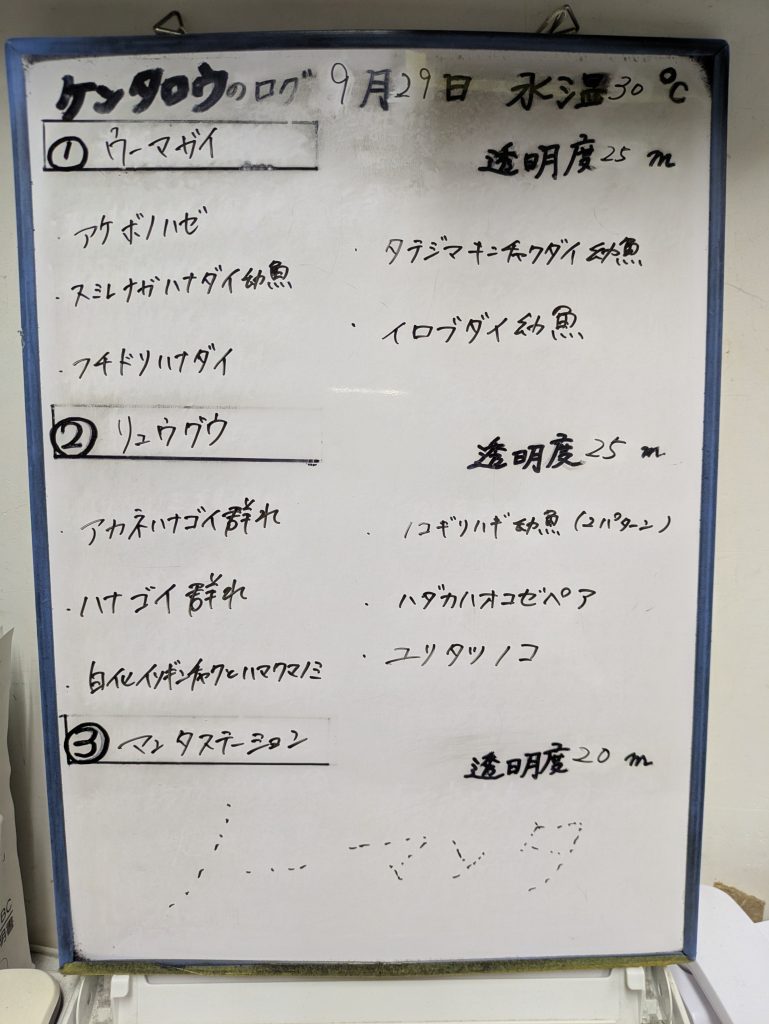 ケンタロウのログ 9月29日 水温30℃
① ウーマガイ
透明度25 m
・アケボノハゼ
・スミレナガハナダイ幼魚
・フチドリハナダイ
・タテジマキンチャクダイ幼魚
・イロブダイ幼魚
② リュウグウ
透明度25 m
・アカネハナゴイ群れ
・ハナゴイ群れ
・白化イソギンチャクとハマクマノミ
・ノコギリハギ幼魚(2パターン)
・ハダカハオコゼペア
・ユリタツノコ
③ マンタステーション
透明度20 m
ノーマンタ